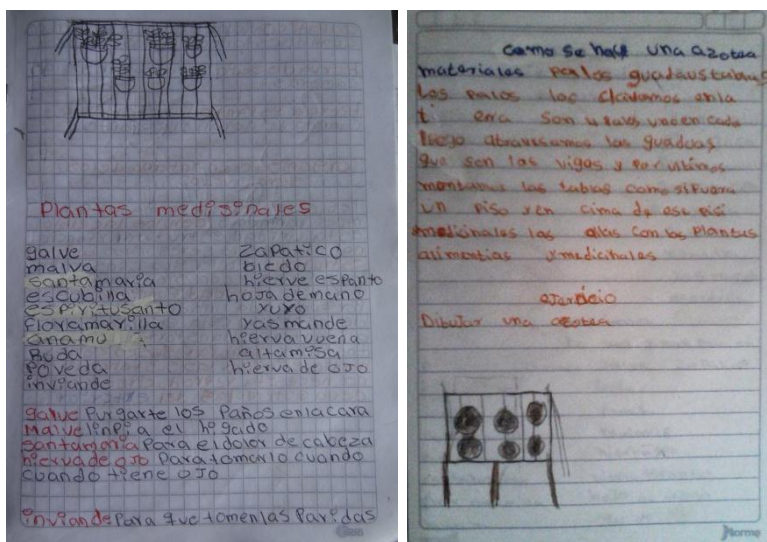 Plantas medisinales
galve
malva
santamaria
escubilla
espiritusanto
floramarilla
anamu
Ruda
Poveda
inviande
zapatico
bledo
hierve espanto
hoja demano
yuyo
yasmande
hierva vuena
altamisa
hierva de ojo
galve Purgarte los Paños enlacara
Malve linpia el higado
santamaria Para eldolor de cabeza
hierva de ojo Para tomarlo cuando
cuando tiene ojo
inviande Para que tomenlas Paridas
como se hace una azotea
materiales
Los palos los clavamos enla
ti erra son
luego atravesamos las guaduas
que son las vigas y por
las tablas como sifuera
un piso yen cima de ese
medicinales las con las Plantas
ymedicinales
ejercicio
Dibujar una azotea
Norma